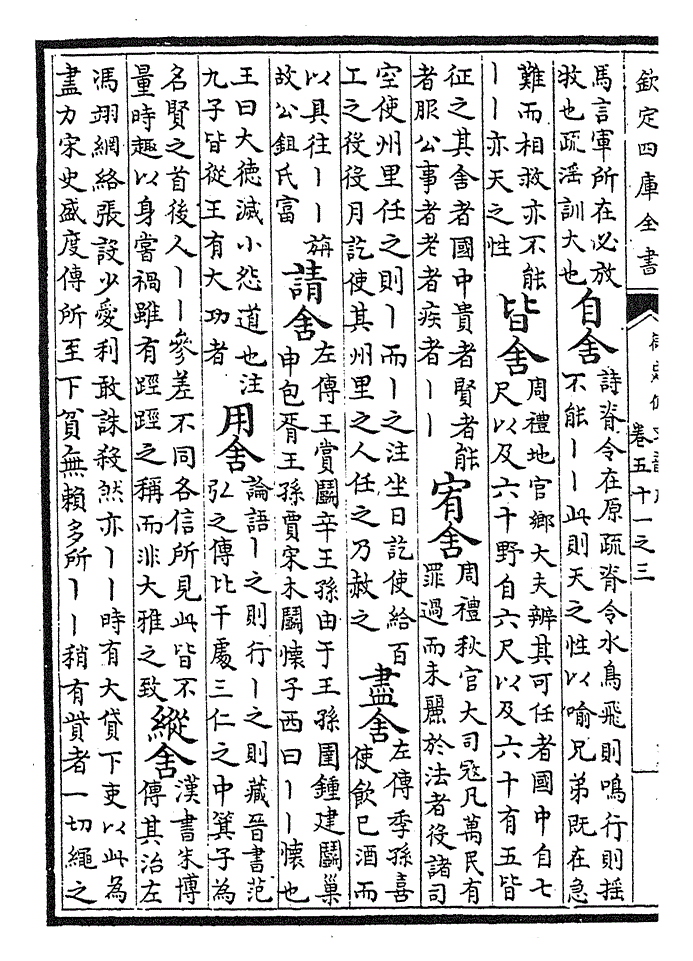 欽定四庫全書
卷五十一之三
馬言軍所在必放
牧也疏淫訓大也
自舍
詩脊令在原疏脊令水鳥飛則鳴行則揺
不能丨丨此則天之性以喻兄弟既在急
難而相救亦不能
丨丨亦天之性
皆舍
周禮地官鄉大夫辨其可任者國中自七
尺以及六十野自六尺以及六十有五皆
征之其舍者國中貴者賢者能
者服公事者老者疾者丨丨
宥舍
周禮秋官大司寇凡萬民有
罪過而未麗於法者役諸司
空使州里任之則丨而丨之注坐日訖使給百
工之役役月訖使其州里之人任之乃赦之
盡舍
左傳季孫喜
使飲已酒而
以具往丨丨旃
故公鉏氏富
請舍
左傳王賞鬭辛王孫由于王孫圉鍾建鬭巢
申包胥王孫賈宋木鬭懷子西曰丨丨懷也
王曰大徳滅小怨道也注
九子皆從王有大功者
用舍
論語丨之則行丨之則藏晉書范
弘之傳比干處三仁之中箕子為
名賢之首後人丨丨參差不同各信所見此皆不
量時趣以身嘗禍雖有踁踁之稱而非大雅之致
縱舍
漢書朱博
傳其治左
馮翊網絡張設少愛利敢誅殺然亦丨丨時有大貸下吏以此為
盡力宋史盛度傳所至下貧無賴多所丨丨稍有貲者一切繩之